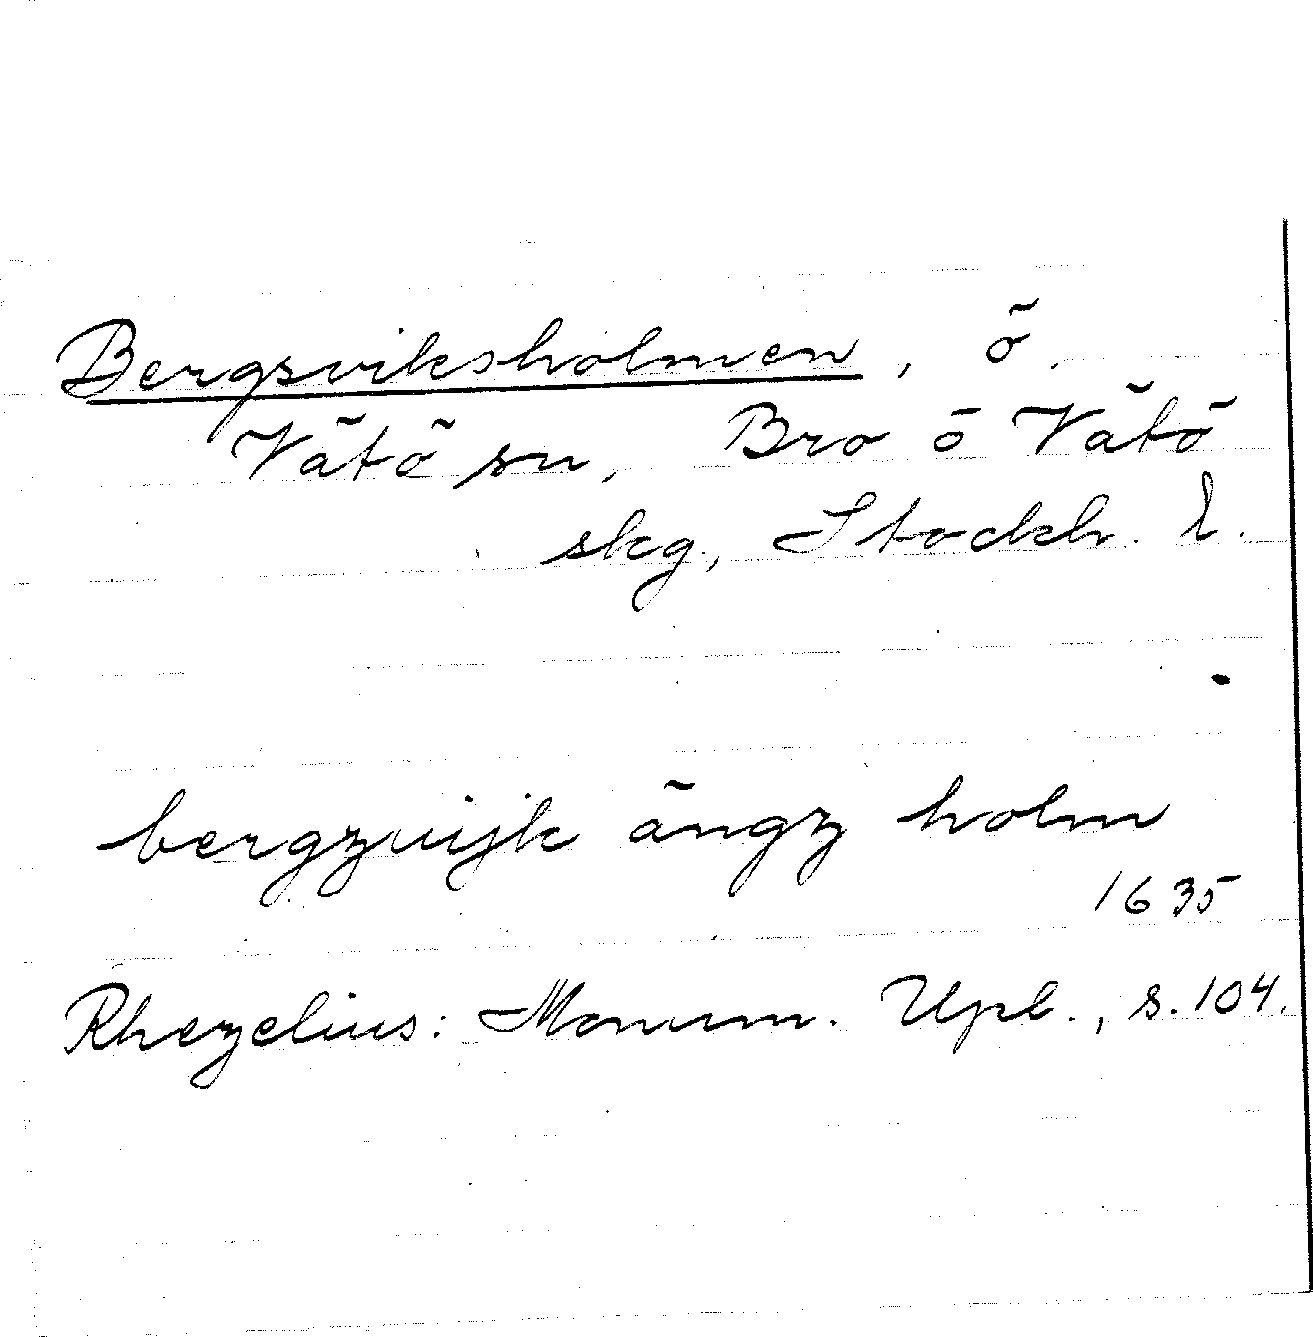 Bergsviksholmen, ö.
Vätö sn, Bro o Vätö
skg, Stockh. l.
bergzuijk ängz holm
1635
Rhezelius: Monum. Upl., s. 104.